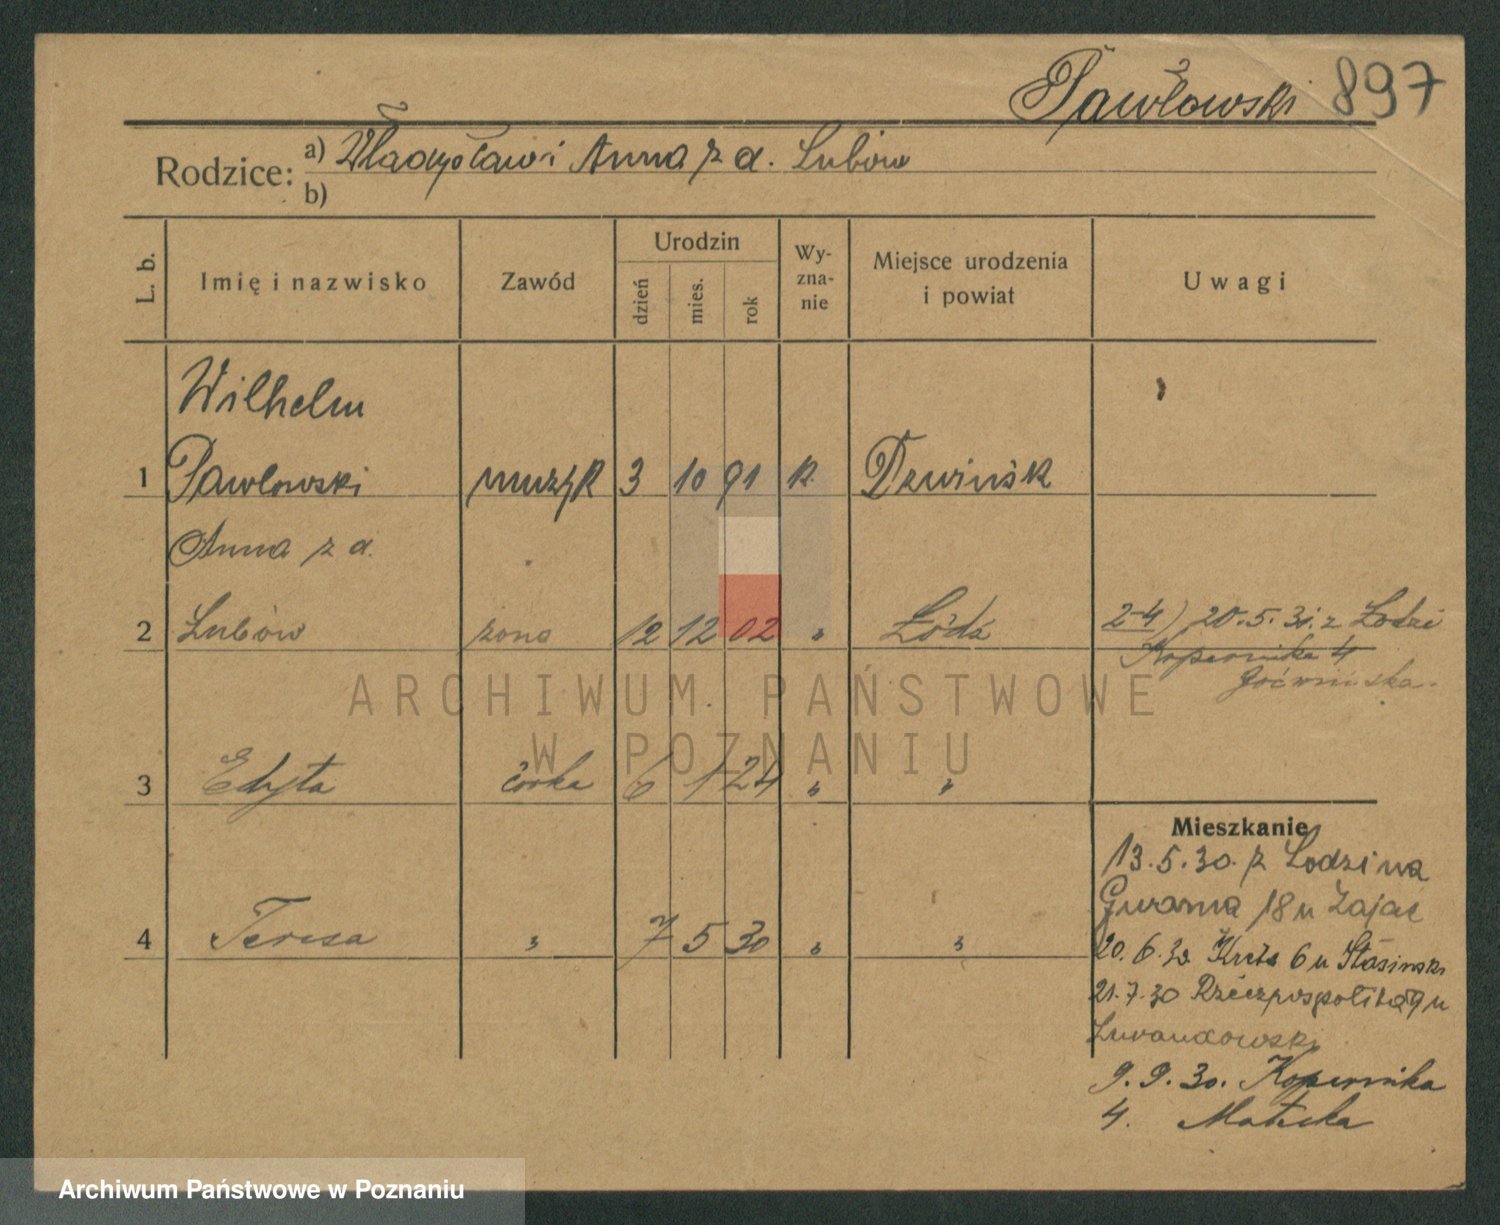 Pawłowski 897
Rodzice: a) Władysław i Anna z d. Lubów
b)
L. b. Imię i nazwisko Zawód Urodzin dzień mies. rok Wy-zna-nie Miejsce urodzenia i powiat Uwagi
Wilhelm
1 Pawłowski muzyk 3 10 91 rk. Dzwińsk
Anna z d.
2 Lubów żona 12 12 02 " Łódź 2-4) 20.5.31. z Łodzi
Kopernika 4
ARCHIWUM PAŃSTWOWE
W POZNANIU
3 Edyta córka 6 1 24 " "
4 Teresa " 7 5 30 " "
Mieszkanie
13.5.30. z Łodzi na
18 u Zając
20.6.30 6 u Stasiński
21.7.30 Rzeczpospolita 9 u
9.9.30. Kopernika
4.
Archiwum Państwowe w Poznaniu